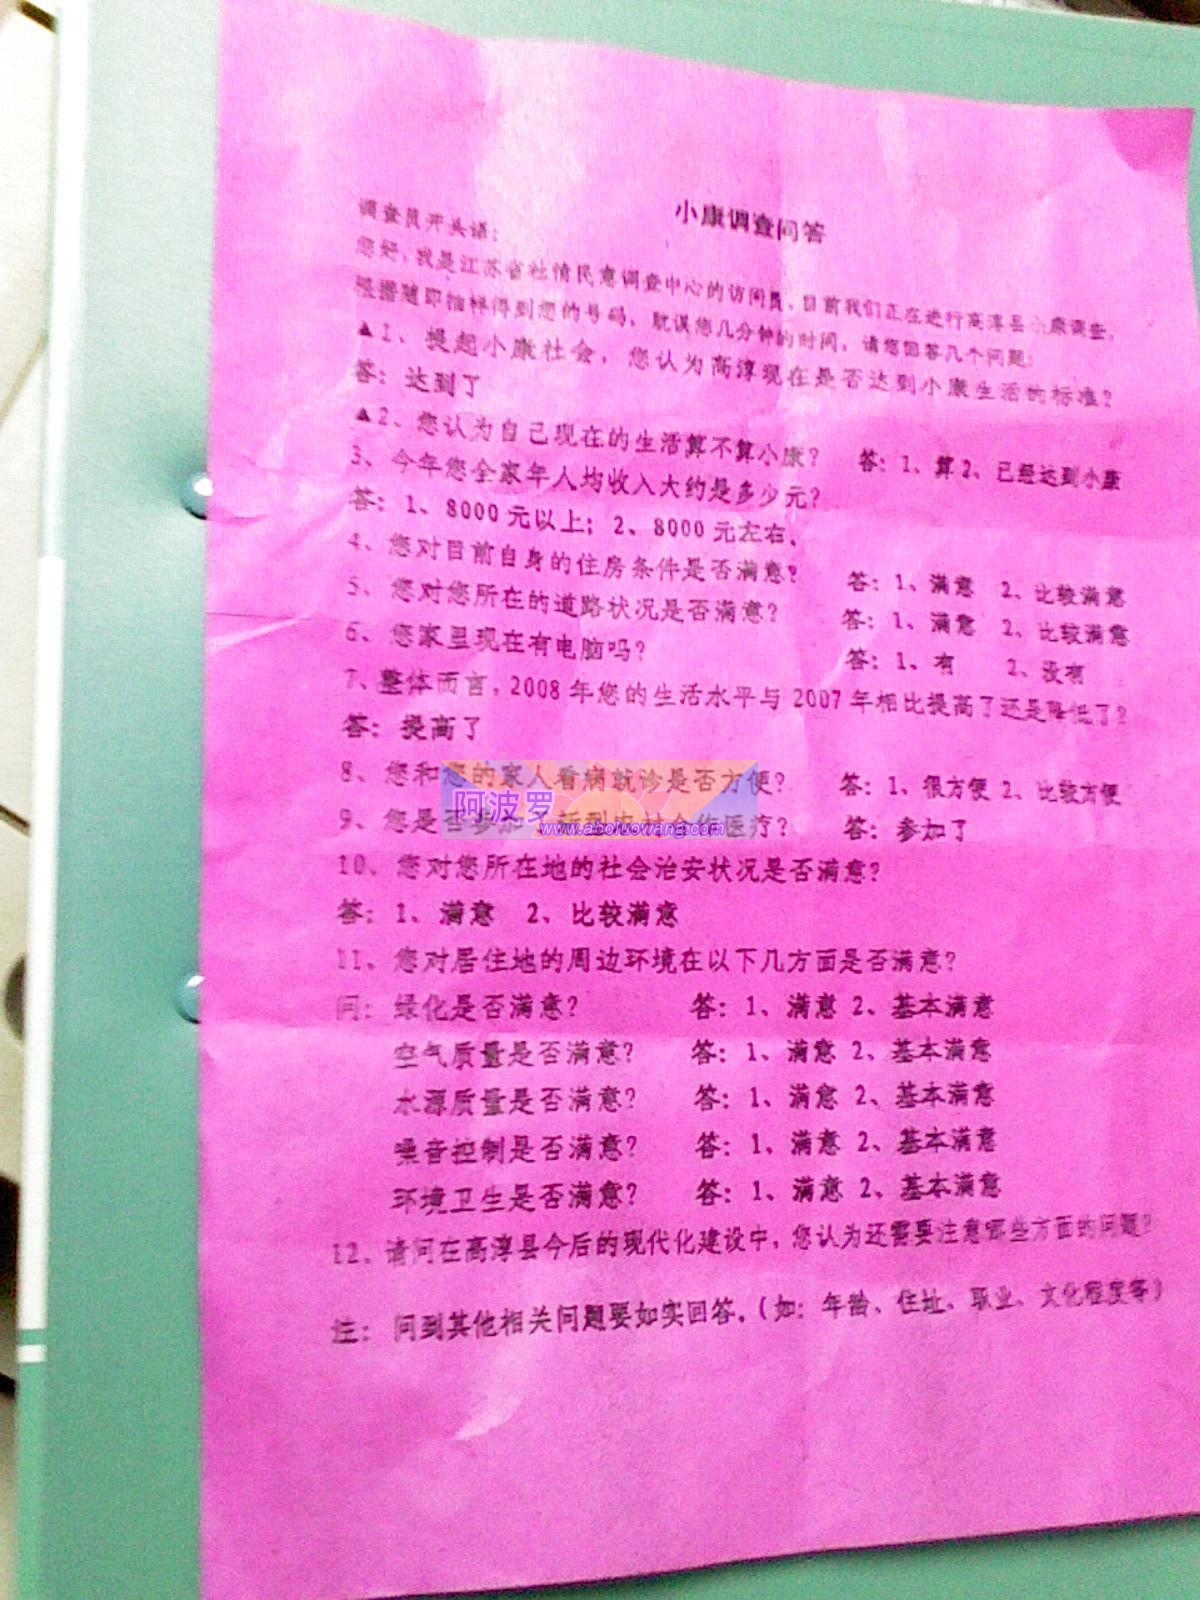 小康调查问答
调查员开头语：
您好，我是江苏省社情民意调查中心的访问员，目前我们正在进行高淳县小康调查，
根据随即抽样得到您的号码，耽误您几分钟的时间，请您回答几个问题：
▲1、提起小康社会，您认为高淳现在是否达到小康生活的标准？
答：达到了
▲2、您认为自己现在的生活算不算小康？ 答：1、算 2、已经达到小康
3、今年您全家年人均收入大约是多少元？
答：1、8000元以上；2、8000元左右、
4、您对目前自身的住房条件是否满意？ 答：1、满意 2、比较满意
5、您对您所在的道路状况是否满意？ 答：1、满意 2、比较满意
6、您家里现在有电脑吗？ 答：1、有 2、没有
7、整体而言，2008年您的生活水平与2007年相比提高了还是降低了？
答：提高了
8、您和您的家人看病就诊是否方便？ 答：1、很方便 2、比较方便
阿波罗
www.aboluowang.com
9、您是否参加了新型农村合作医疗？ 答：参加了
10、您对您所在地的社会治安状况是否满意？
答：1、满意 2、比较满意
11、您对居住地的周边环境在以下几方面是否满意？
问：绿化是否满意？ 答：1、满意 2、基本满意
空气质量是否满意？ 答：1、满意 2、基本满意
水源质量是否满意？ 答：1、满意 2、基本满意
噪音控制是否满意？ 答：1、满意 2、基本满意
环境卫生是否满意？ 答：1、满意 2、基本满意
12、请问在高淳县今后的现代化建设中，您认为还需要注意哪些方面的问题？
注：问到其他相关问题要如实回答。（如：年龄、住址、职业、文化程度等）